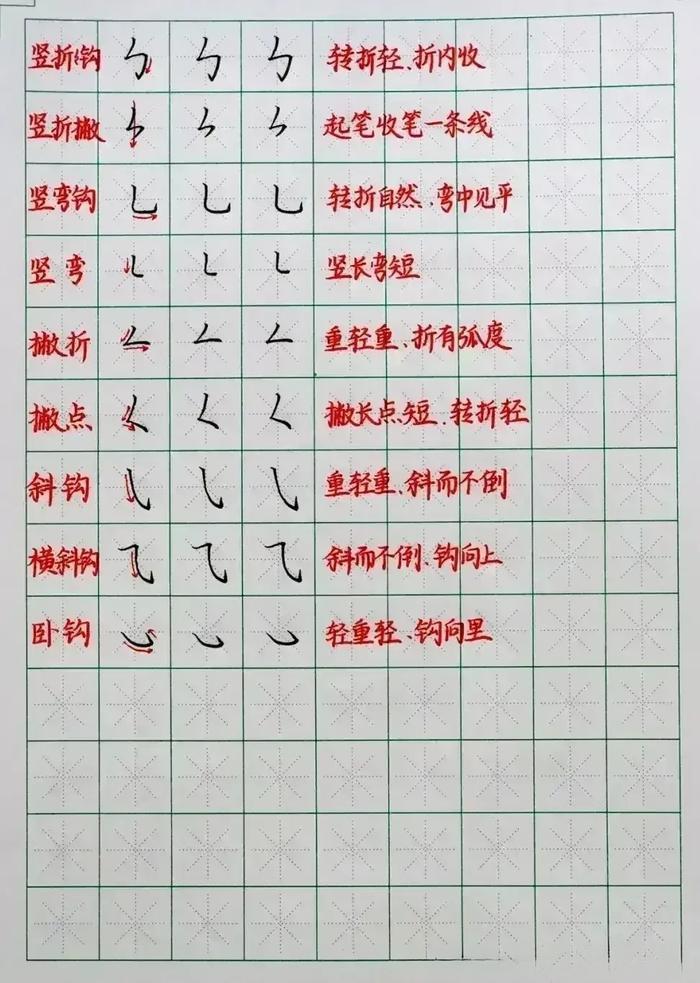 竖折折钩 ㇉ ㇉ ㇉ 转折轻、折内收
竖折撇 ㇞ ㇞ ㇞ 起笔收笔一条线
竖弯钩 乚 乚 乚 转折自然、弯中见平
竖弯 ㇄ ㇄ ㇄ 竖长弯短
撇折 ㇜ ㇜ ㇜ 重轻重、折有弧度
撇点 ㇛ ㇛ ㇛ 撇长点短、转折轻
斜钩 ㇂ ㇂ ㇂ 重轻重、斜而不倒
横斜钩 ⺄ ⺄ ⺄ 斜而不倒、钩向上
卧钩 ㇃ ㇃ ㇃ 轻重轻、钩向里